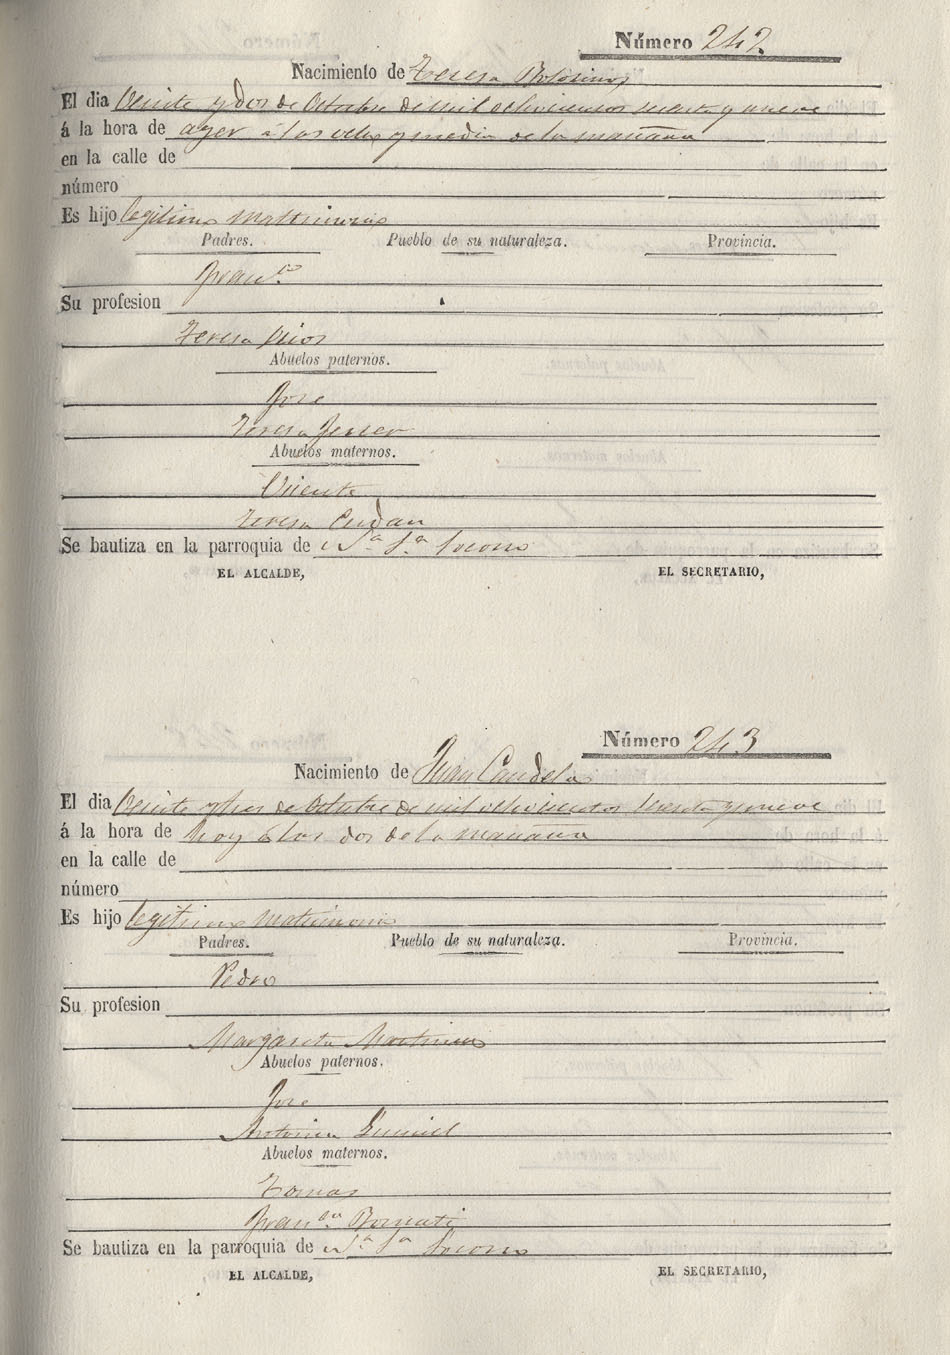 Número 242.
Nacimiento de Teresa
El dia Veinte y dos de Octubre de mil ochocientos sesenta y nueve
á la hora de ayer á las ocho y media de la mañana
en la calle de
número
Es hijo legitimo matrimonio
Padres. Pueblo de su naturaleza. Provincia.
Fran.co
Su profesion
Teresa Rios
Abuelos paternos.
Jose
Teresa Ferrer
Abuelos maternos.
Vicente
Teresa Cerdan
Se bautiza en la parroquia de N.a S.a Socorro
EL ALCALDE, EL SECRETARIO,
Número 243
Nacimiento de Juan Candelas
El dia Veinte y tres de Octubre de mil ochocientos sesenta y nueve
á la hora de hoy á las dos de la mañana
en la calle de
número
Es hijo legitimo matrimonio
Padres. Pueblo de su naturaleza. Provincia.
Pedro
Su profesion
Margarita Martinez
Abuelos paternos.
Jose
Antonia
Abuelos maternos.
Tomas
Fran.ca
Se bautiza en la parroquia de N.a S.a Socorro
EL ALCALDE, EL SECRETARIO,